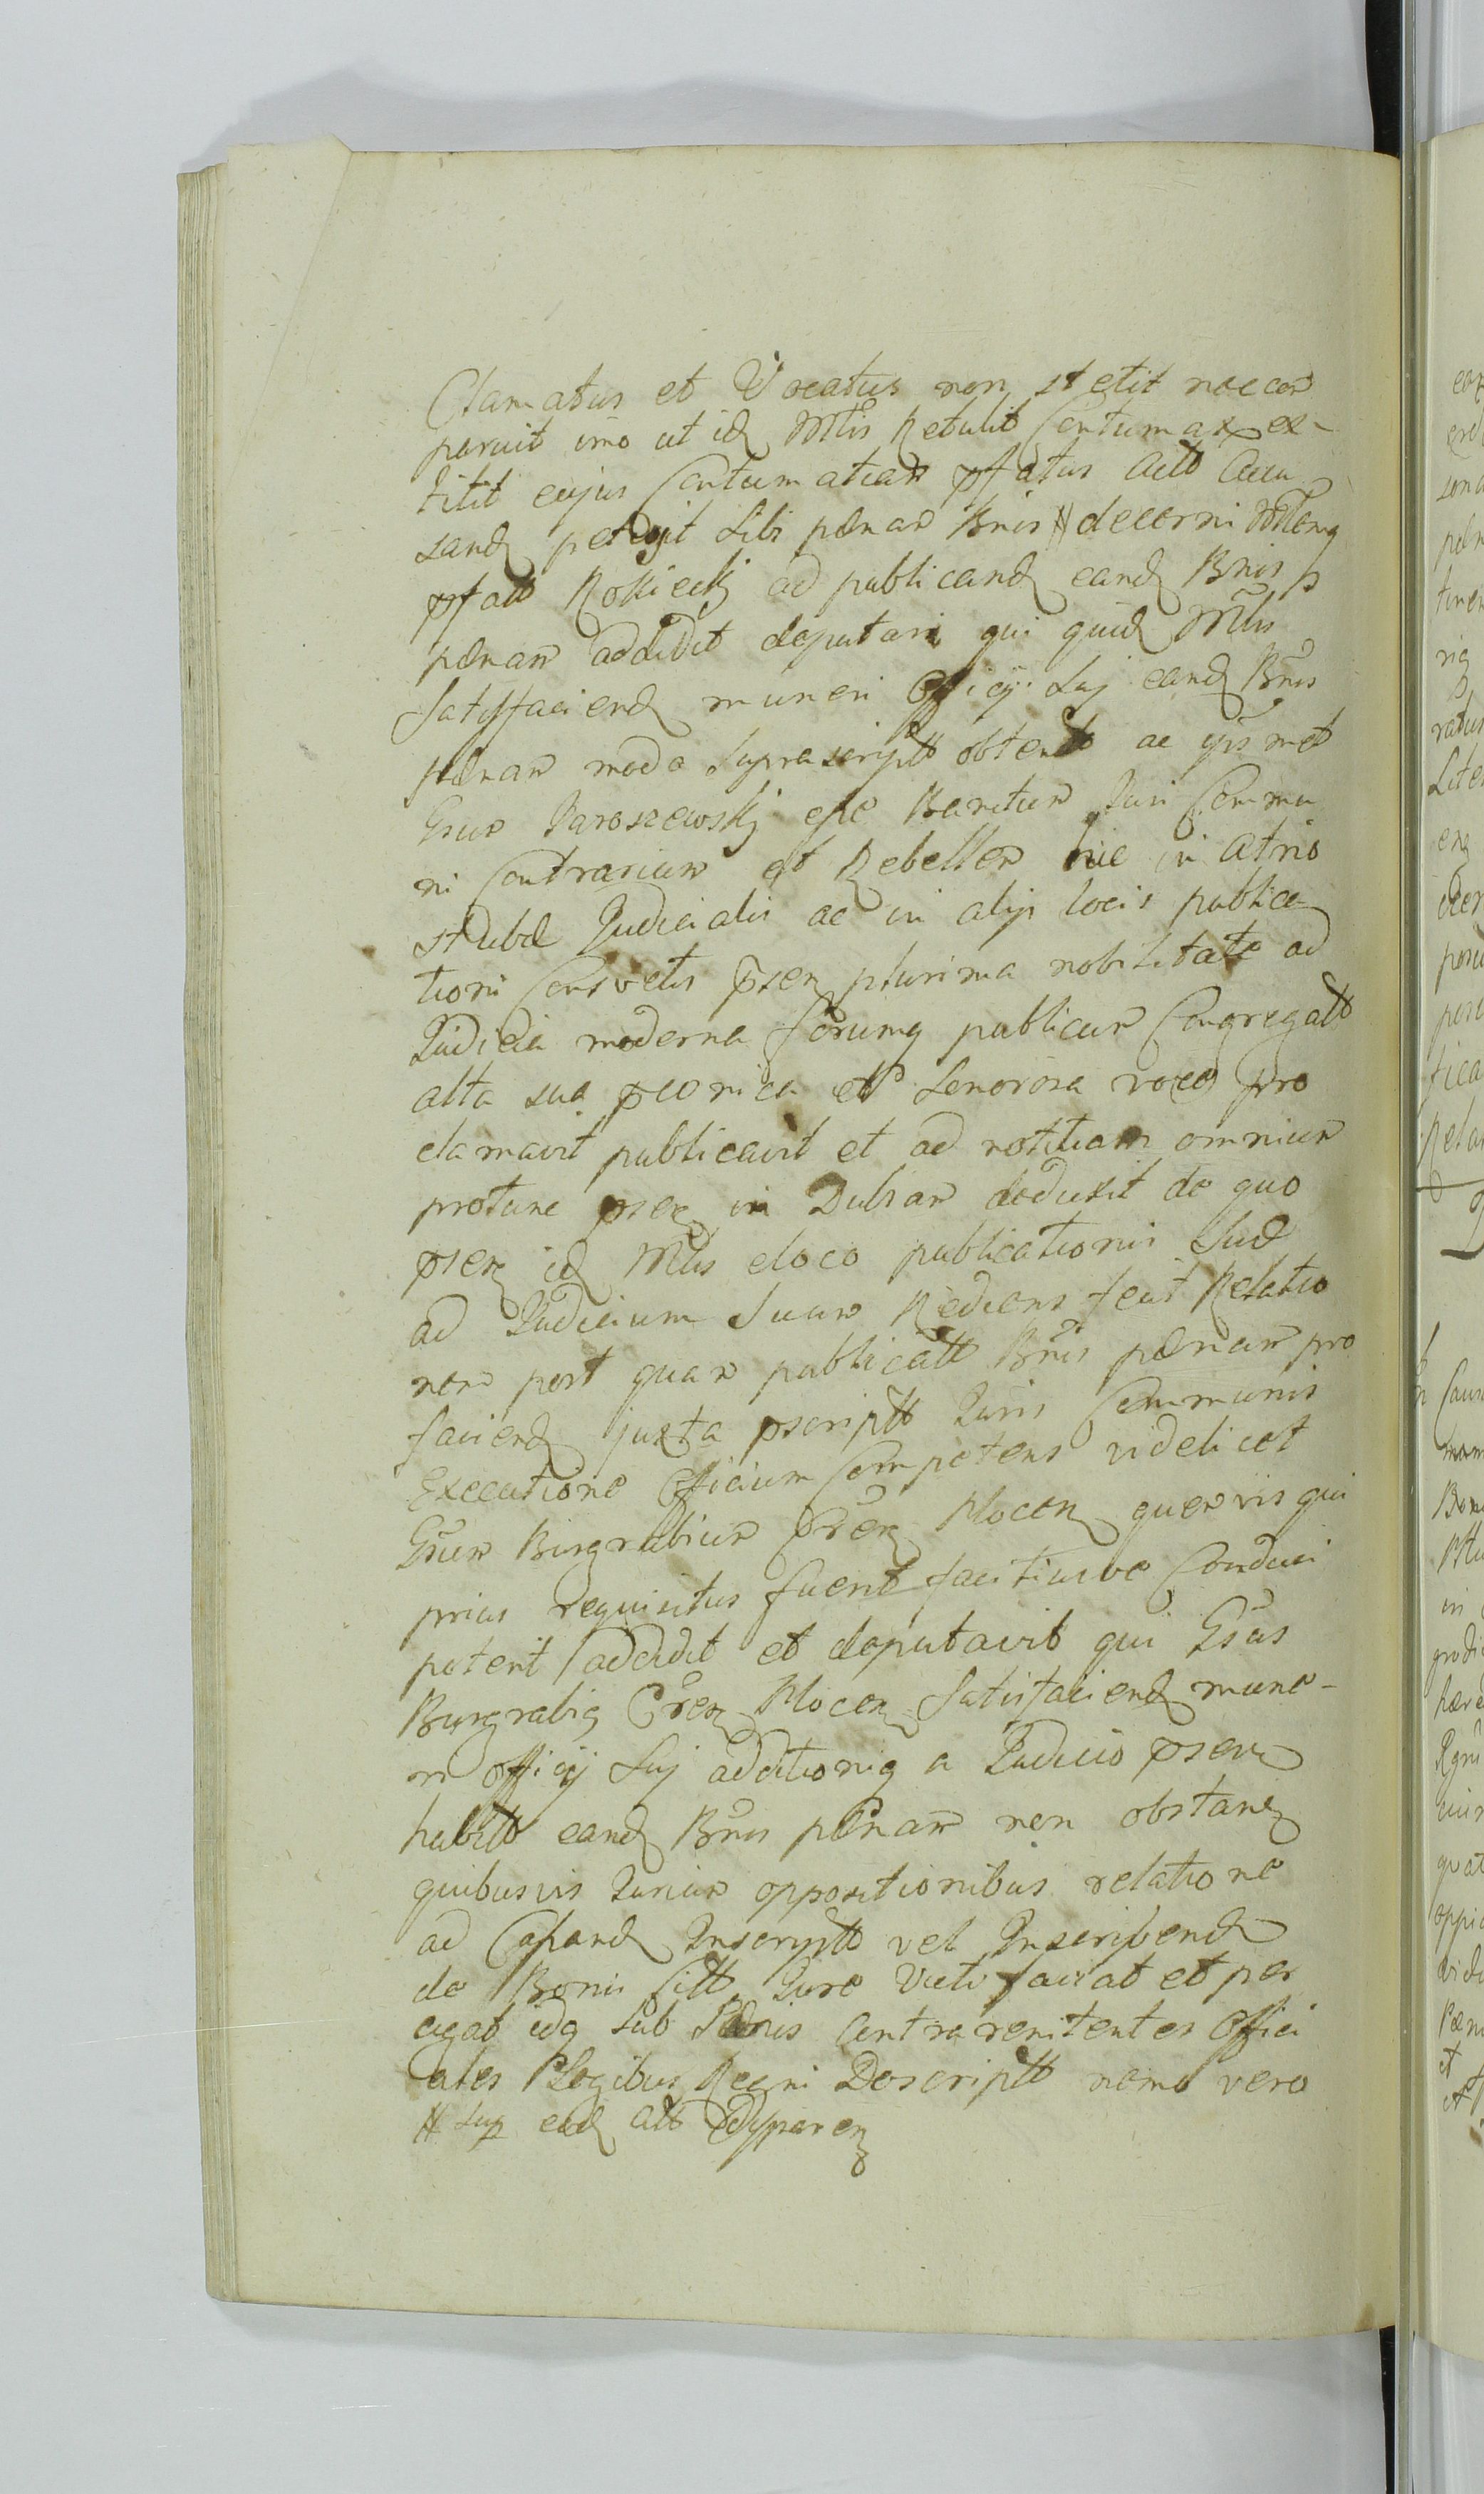 Clamatus et Vocatus non stetit nec com
paruit imo ut id Mtlis Retulit Contumax ex-
titit cujus Contumatiam pfatus Actt Accu
sand petyt Sibi pænam Bnis # decerni Mtlemq
pfatt Rosticki ad publicand eand Bnis
pænam addidit deputari qui quid Mtlis
Satisfaciend muneri Officij Suj eand Bnis
pænam modo Suprascriptt obtentt ac ipsmet
Gsum Jaroszewskj esse Banitum Juri Commu
ni Contrarium et Rebellem hic in Atrio
stubæ Judicialis ac in alijs locis publica
tioni Consvetis psen plurima nobilitate ad
Judicia moderna forumq publicum Congregatt
alta sua pconica ett Sonorosa voce pro
clamavit publicavit et ad notitiam omnium
protunc psen in Dubiam deduxit de quo
psen id Mtlis eloco publicationis Suæ
ad Judicium Suum Rediens fecit Relatio
nem post quam publicatt Bnis pænam pro
faciend juxta pscriptt Juris Communis
Executione Officium Competens videlicet
Gsum Burgrabium Cren Plocen quemvis qui
prius requisitus fuerit faciliusve Conduci
poterit addidit et deputavit qui Gsus
Burgrabig Cren Plocen Satisfaciend mune-
ri officij Suj additioniq a Judicio psenti
habitt eand Bnis pænam non obstan
quibusvis Jurium oppositionibus relatione
ad Capand Inscriptt vel Inscribend
de Bonis Citt Jure Victi faciat et per
agat idq Sub Pænis Contra renitentes Offici
ales Legibus Regni Descriptt nomo vero
# Sup ead Att Dispparen